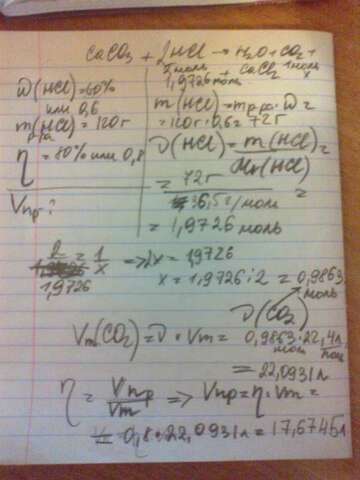 CaCO3 + 2HCl → H2O + CO2 +
+ CaCl2
2 моль
1 моль
1,9726 моль
x
ω(HCl) = 60%
или 0,6
m(HCl) = 120 г
р-ра
η = 80% или 0,8
Vпр?
m(HCl) = mр-ра · ω =
= 120 г · 0,6 = 72 г
ν(HCl) = m(HCl) =
Mr(HCl)
= 72 г =
36,5 г/моль
= 1,9726 моль
2 = 1 => 2x = 1,9726
1,9726 x
x = 1,9726 : 2 = 0,9863
моль
ν(CO2)
Vm(CO2) = ν · Vm = 0,9863 · 22,4 л
моль моль
= 22,0931 л
η = Vпр => Vпр = η · Vm =
Vm
= 0,8 · 22,0931 л = 17,6745 л